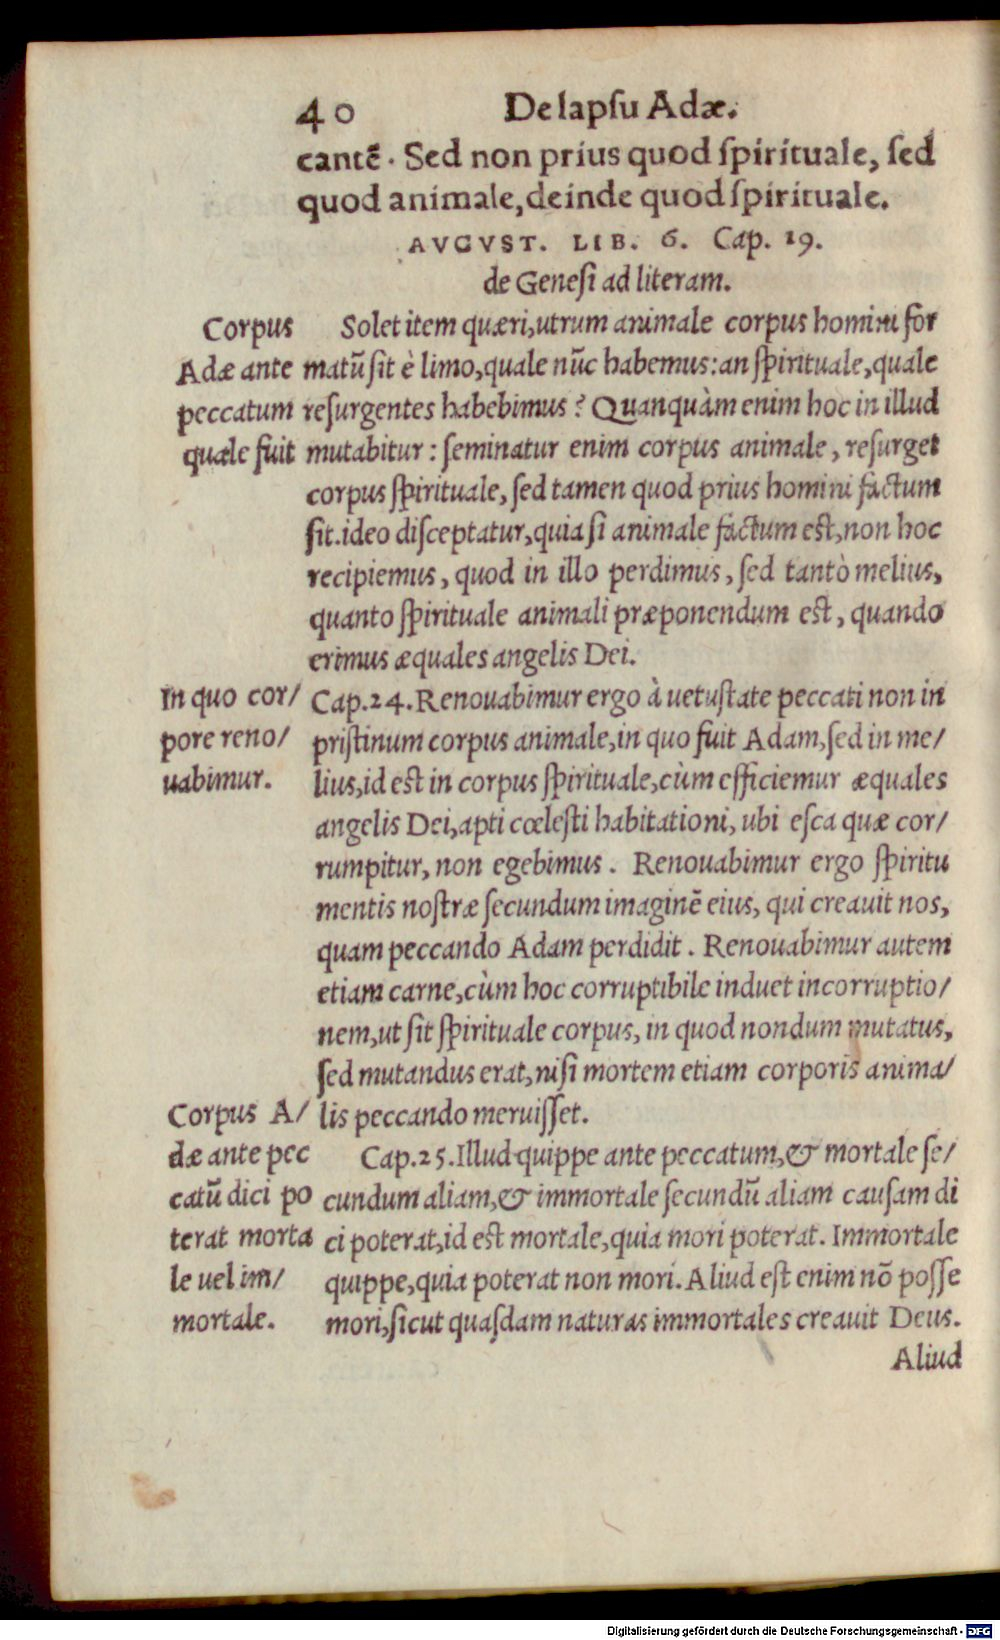 40 De lapſu Adæ.
cantē. Sed non prius quod ſpirituale, ſed
quod animale, deinde quod ſpirituale.
AVGVST. LIB. 6. Cap. 19.
de Geneſi ad literam.
Corpus
Adæ ante
peccatum
quale fuit
Solet item quæri, utrum animale corpus homini for
matū ſit è limo, quale nūc habemus: an ſpirituale, quale
reſurgentes habebimus? Quanquàm enim hoc in illud
mutabitur: ſeminatur enim corpus animale, reſurget
corpus ſpirituale, ſed tamen quod prius homini factum
ſit. ideo diſceptatur, quia ſi animale factum eſt, non hoc
recipiemus, quod in illo perdimus, ſed tantò melius,
quanto ſpirituale animali præponendum eſt, quando
erimus æquales angelis Dei.
In quo cor/
pore reno/
uabimur.
Cap. 24. Renouabimur ergo à uetuſtate peccati non in
priſtinum corpus animale, in quo fuit Adam, ſed in me/
lius, id eſt in corpus ſpirituale, cùm efficiemur æquales
angelis Dei, apti cœleſti habitationi, ubi eſca quæ cor/
rumpitur, non egebimus. Renouabimur ergo ſpiritu
mentis noſtræ ſecundum imaginē eius, qui creauit nos,
quam peccando Adam perdidit. Renouabimur autem
etiam carne, cùm hoc corruptibile induet incorruptio/
nem, ut ſit ſpirituale corpus, in quod nondum mutatus,
ſed mutandus erat, niſi mortem etiam corporis anima/
lis peccando meruiſſet.
Corpus A/
dæ ante pec
catū dici po
terat morta
le uel im/
mortale.
Cap. 25. Illud quippe ante peccatum, & mortale ſe/
cundum aliam, & immortale ſecundū aliam cauſam di
ci poterat, id eſt mortale, quia mori poterat. Immortale
quippe, quia poterat non mori. Aliud eſt enim nō poſſe
mori, ſicut quaſdam naturas immortales creauit Deus.
Aliud
Digitalisierung gefördert durch die Deutsche Forschungsgemeinschaft - DFG